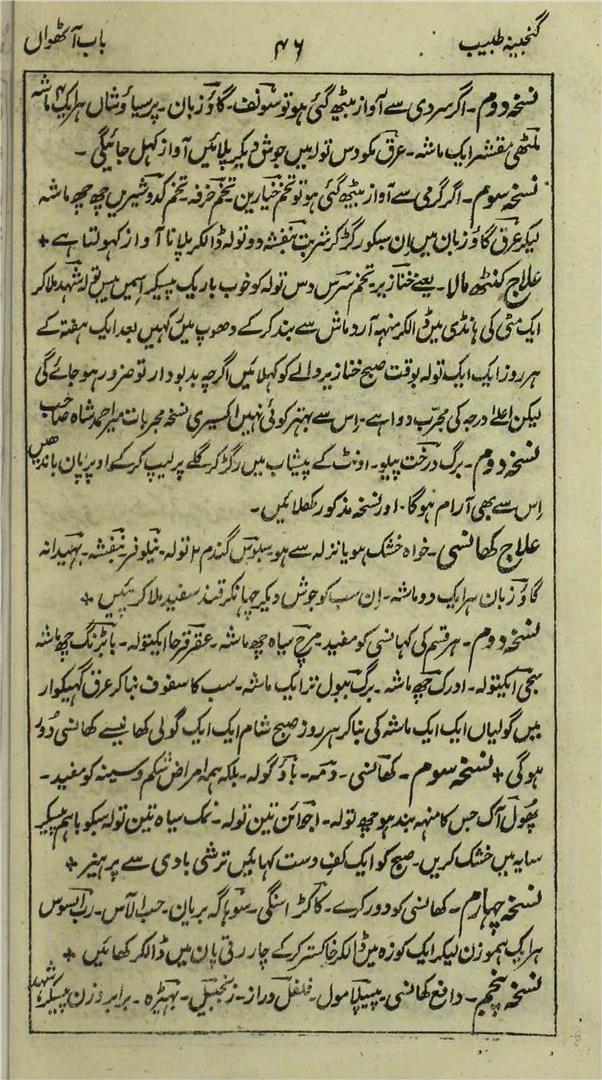 گنجینہ طبیب ۴۶ باب آٹھواں
نسخہ دوم۔ اگر سردی سے آواز بیٹھ گئی ہو تو سونف۔ گاؤزبان۔ پرسیاؤشاں ہر ایک ۴ ماشہ
ملٹھی مقشر ایک ماشہ۔ عرق مکو دس تولہ میں جوش دیکر پلائیں آواز کہل جائیگی۔
نسخہ سوم۔ اگر گرمی سے آواز بیٹھ گئی ہو تو تخم خیارین۔ تخم خرفہ۔ تخم کدو شیریں چھ چھ ماشہ
لیکر عرق گاؤزبان میں ان سبکو رگڑ کر شربت بنفشہ دو تولہ ڈالکر پلانا آواز کہولتا ہے +
علاج کنٹھ مالا۔ یعنے خنازیر۔ تخم سرس دس تولہ کو خوب باریک پیسکر اسمیں بیس تولہ شہد ملا کر
ایک مٹی کی ہانڈی میں ڈالکر منہہ آرد ماش سے بند کر کے دھوپ میں رکہیں بعد ایک ہفتہ کے
ہر روز ایک ایک تولہ بوقت صبح خنازیر والے کو کہلائیں اگرچہ بدبودار تو ضرور ہو جائے گی
لیکن اعلےٰ درجہ کی مجرّب دوا ہے۔ اس سے بہتر کوئی نہیں اکسیری نسخہ مجربات میر احمد شاہ صاحب
نسخہ دوم۔ برگ درخت پیلو۔ اونٹ کے پیشاب میں رگڑ کر گلے پر لیپ کر کے اوپر پان باندھیں
اس سے بھی آرام ہوگا۔ اور نسخہ مذکور کھلائیں۔
علاج کھانسی۔ خواہ خشک ہو یا نزلہ سے ہو سبوس گندم ۲ تولہ۔ نیلوفر۔ بنفشہ۔ بہیدانہ
گاؤزبان ہر ایک دو ماشہ۔ ان سب کو جوش دیکر چہانکر قند سفید ملا کر پئیں +
نسخہ دوم۔ ہر قسم کی کہانسی کو مفید۔ مرچ سیاہ چھ ماشہ۔ عقرقرحا ایکتولہ۔ باؤبڑنگ چھ ماشہ
سجی ایکتولہ۔ ادرک چھ ماشہ۔ برگ ببول تر ایک ماشہ۔ سب کا سفوف بنا کر عرق گھیکوار
میں گولیاں ایک ایک ماشہ کی بنا کر ہر روز صبح شام ایک ایک گولی کھانیسے کھانسی دور
ہوگی + نسخہ سوم۔ کھانسی۔ دمہ۔ باؤ گولہ۔ بلکہ ہمہ امراض شکم و سینہ کو مفید۔
پھول آک جس کا منہہ بند ہو چھ تولہ۔ اجوائن تین تولہ۔ نمک سیاہ تین تولہ سبکو باہم پیسکر
سایہ میں خشک کریں۔ صبح کو ایک کف دست کہائیں ترشی بادی سے پرہیز +
نسخہ چہارم۔ کھانسی کو دور کرے۔ کاکڑا سنگی۔ سوہاگہ بریان۔ حب الآس۔ رب السوس
ہر ایک ہموزن لیکر ایک کوزہ میں ڈالکر خاکستر کر کے چار رتی پان میں ڈالکر کھائیں +
نسخہ پنجم۔ دافع کھانسی۔ پیپلامول۔ فلفل دراز۔ زنجبیل۔ بہیڑہ۔ برابر وزن پیسکر شہد